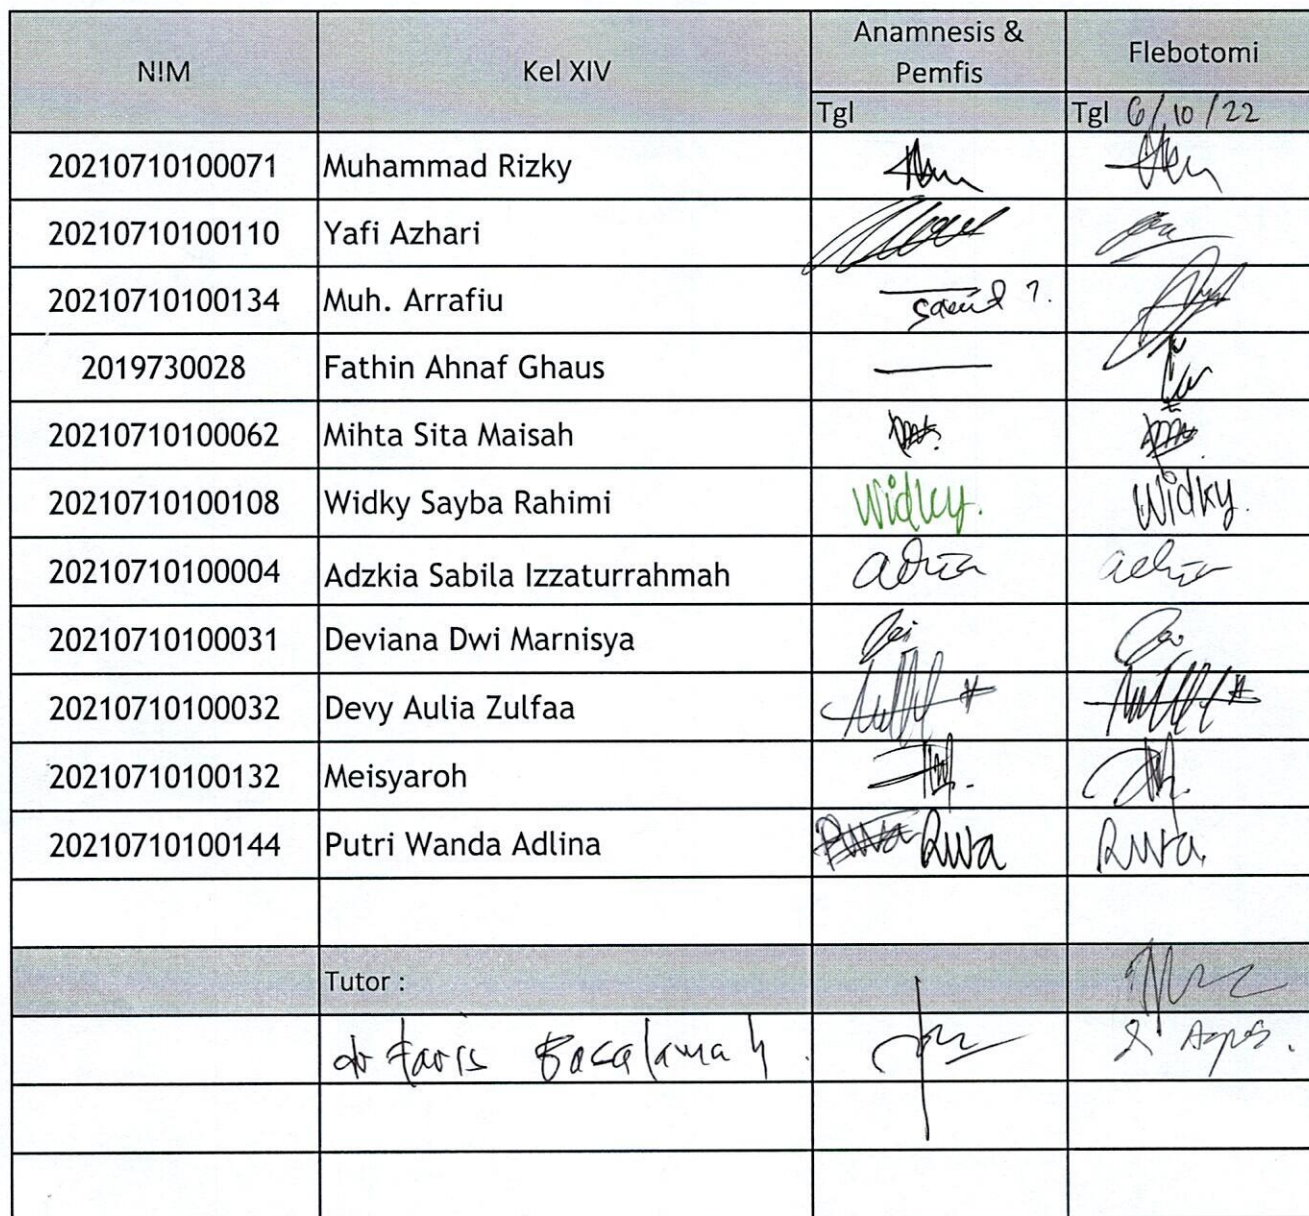 N!M Kel XIV Anamnesis & Pemfis Flebotomi
Tgl Tgl 6/10/22
20210710100071 Muhammad Rizky
20210710100110 Yafi Azhari
20210710100134 Muh. Arrafiu ?.
2019730028 Fathin Ahnaf Ghaus
20210710100062 Mihta Sita Maisah
20210710100108 Widky Sayba Rahimi Widky. Widky.
20210710100004 Adzkia Sabila Izzaturrahmah
20210710100031 Deviana Dwi Marnisya
20210710100032 Devy Aulia Zulfaa
20210710100132 Meisyaroh
20210710100144 Putri Wanda Adlina
Tutor :
dr Faris Basalamah. Agus.